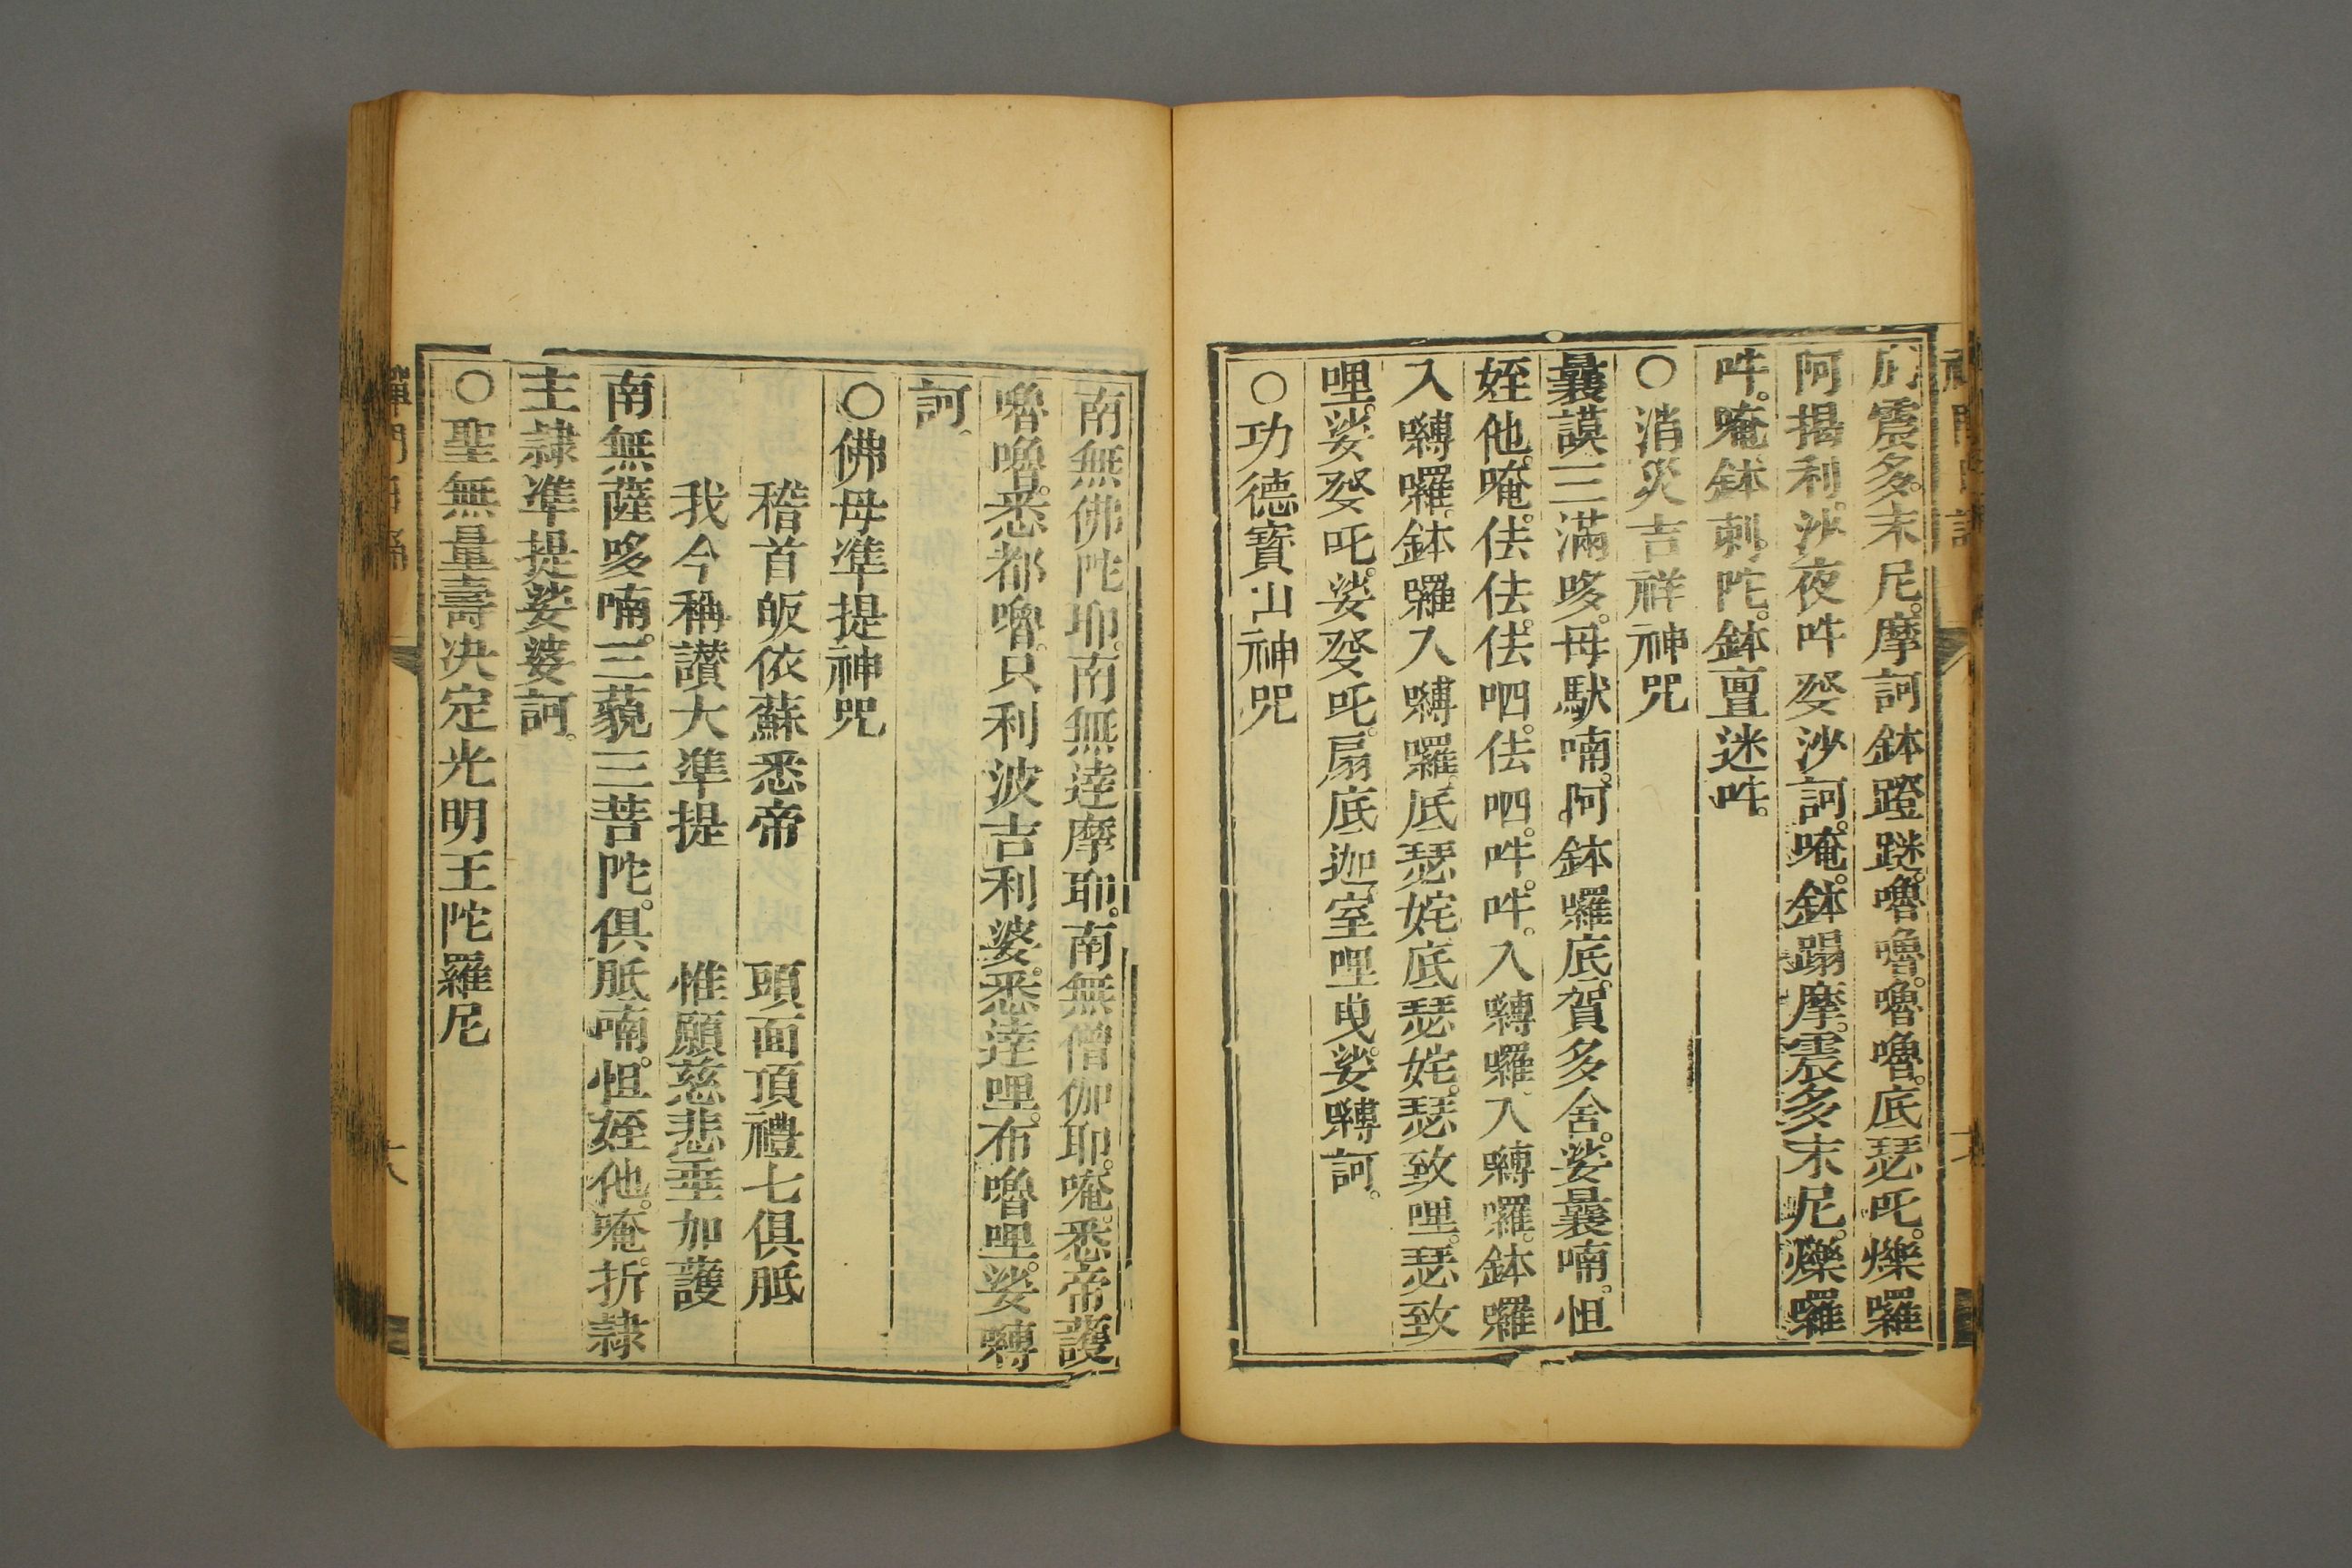 震多末尼。摩訶鉢蹬謎。嚕嚕。嚕嚕。底瑟吒。爍囉
阿揭利。沙夜吽癹沙訶。唵。鉢蹋摩。震多末尼。爍囉
吽。唵鉢刺陀。鉢亶迷吽。
○消災吉祥神咒
曩謨三滿哆。母馱喃。阿鉢囉底。賀多舍。娑曩喃。怛
姪他。唵。佉佉。佉呬。佉呬。吽。吽。入嚩囉入嚩囉。鉢囉
入嚩囉。鉢囉入嚩囉。底瑟姹。底瑟姹。瑟致哩。瑟致
哩。娑癹吒。娑癹吒。扇底迦。室哩曳。娑嚩訶。
○功德寶山神咒
南無佛陀耶。南無達摩耶。南無僧伽耶。唵。悉帝護
嚕嚕。悉都嚕。只利波吉利婆。悉達哩。布嚕哩。娑嚩
訶。
○佛母準提神咒
稽首皈依蘇悉帝　頭面頂禮七俱胝
我今稱讚大準提　惟願慈悲垂加護
南無薩哆喃。三藐三菩陀。俱胝喃。怛姪他。唵。折隷
主隷準提娑婆訶。
○聖無量壽決定光明王陀羅尼
十八